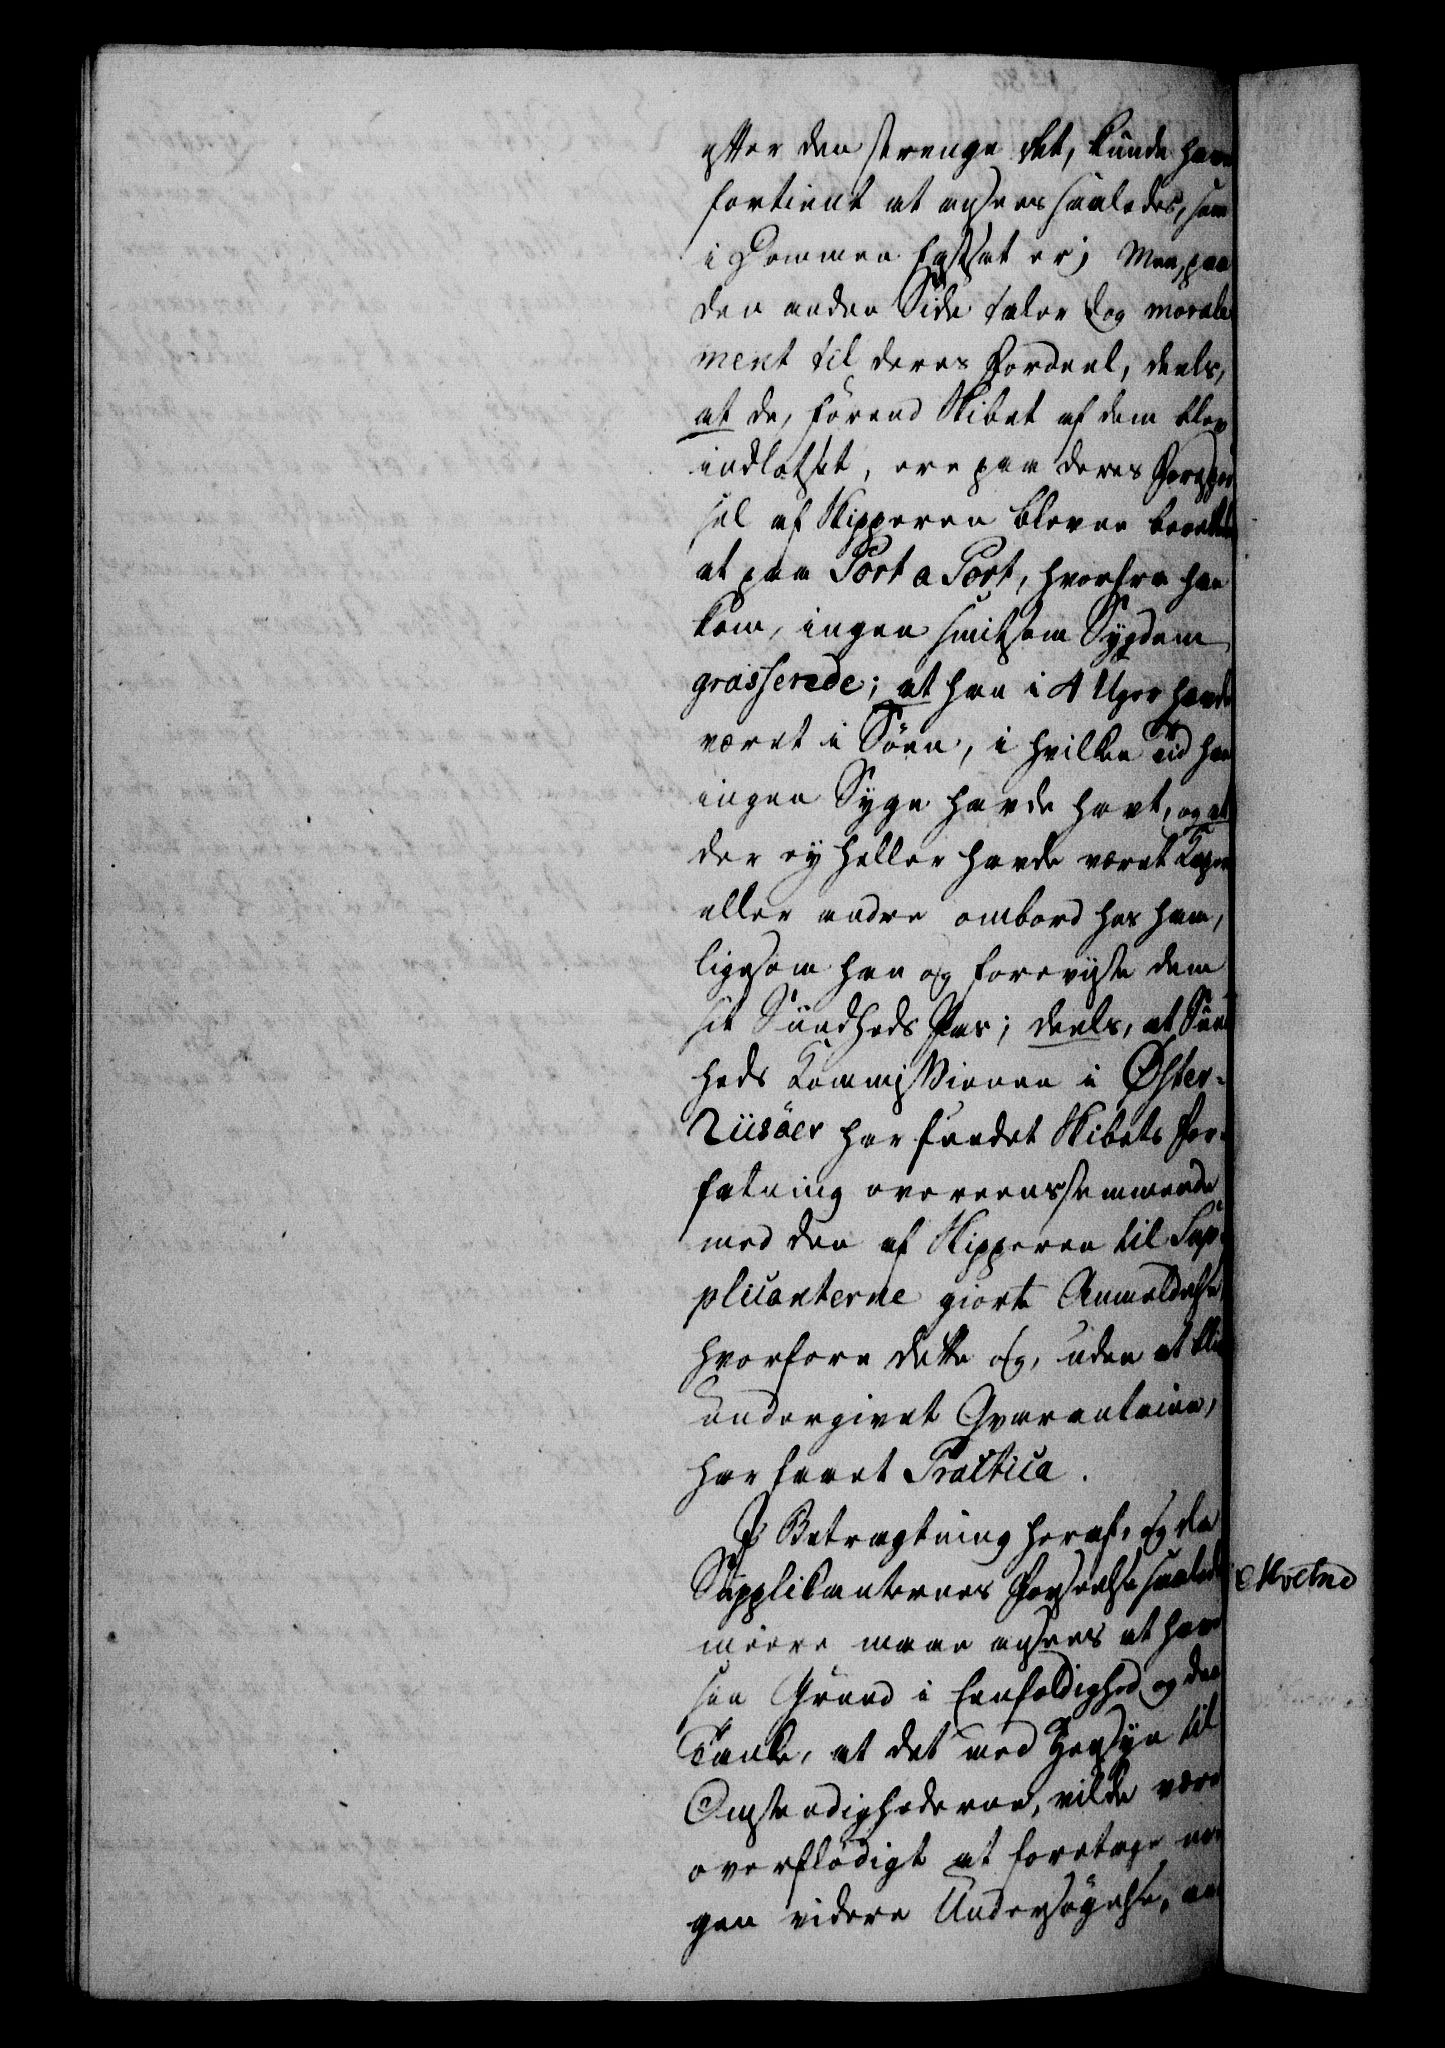 efter den strenge Ret, kunde have
fortient at ansees saaledes, som
i Dommen fastsat er; Men, paa
den anden Side taler dog morale
ment til deres Fordeel, deels,
at de, förend Skibet af dem blev
indlodset, ere paa deres Forespør
sel af Skipperen blevne berettede
at paa Port a Port, hvorfra han
kom, ingen smitsom Sygdom
grasserede; at han i 4 Uger havde
været i Söen, i hvilken Tid han
ingen Syge havde havt, og at
der ey heller havde været Kaper
eller andre ombord hos ham,
ligesom han og foreviste dem
sit Sundheds Pas; deels, at Sund
heds Kommissionen i Øster-
Riisöer har fundet Skibets For-
fatning overeensstemmende
med den af Skipperen til Sup-
plicanterne giorte Anmeldelse,
hvorfore dette og, uden at blive
undergivet Qvarantaine,
har faaet Practica.
I Betragtning heraf, og da
Supplikanternes Forseelse saaledes
meere maae ansees at have
sin Grund i Eenfoldighed og den
Tanke, at det med Hensyn til
Omstændighederne, vilde være
overflödigt at foretage no
gen videre Undersøgelse, en